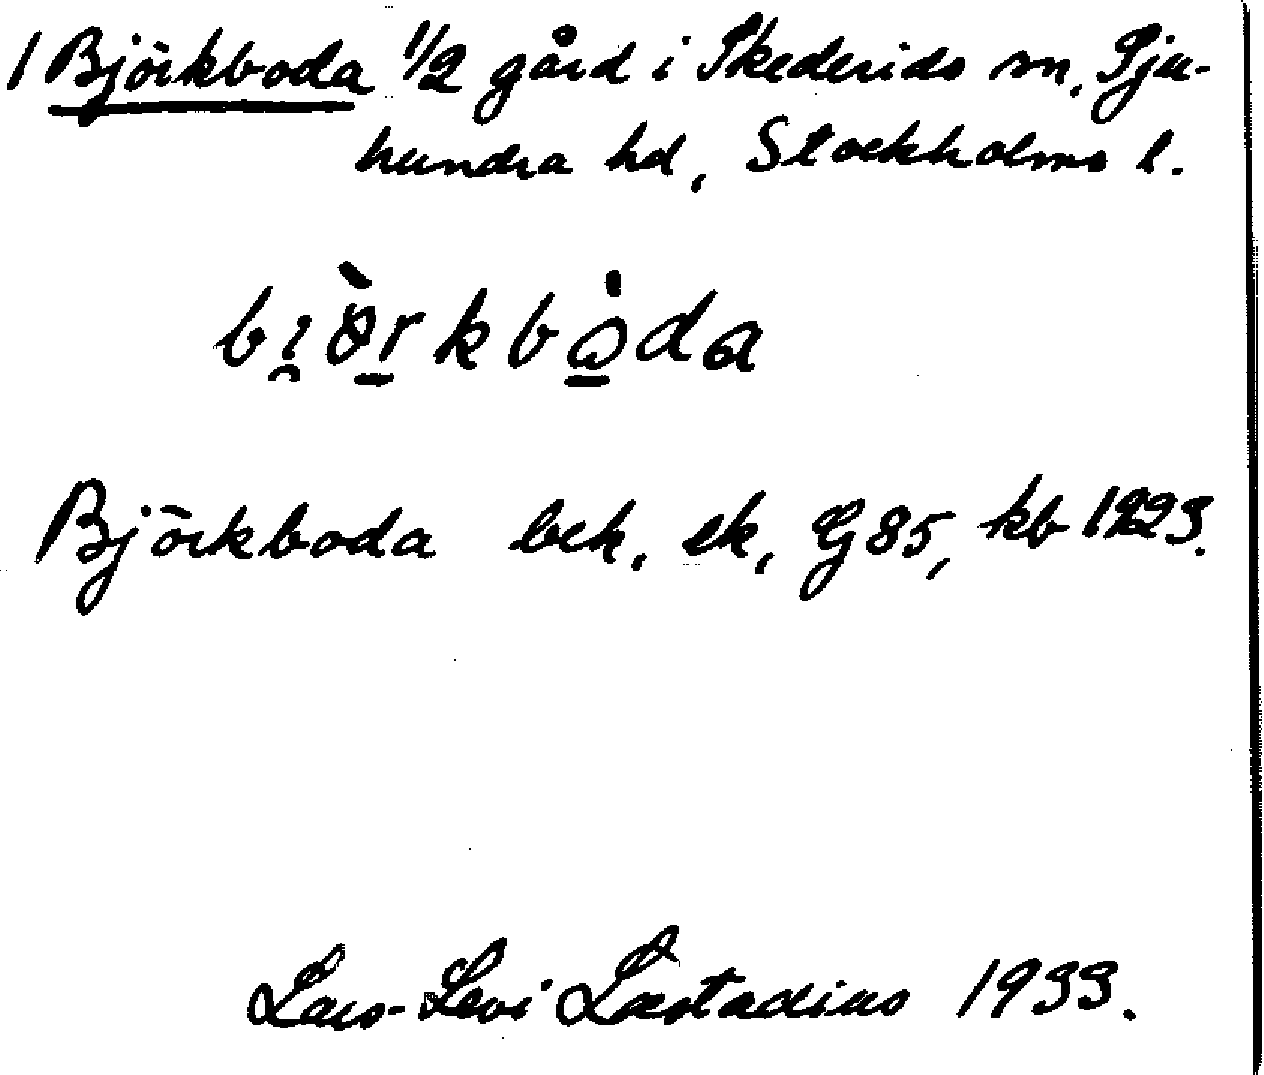 1 Björkboda 1/2 gård i Skederids sn, Sju-
hundra hd, Stockholms l.
bi̯ö̀r̠kbo̠̍da
Björkboda bek, ek, G85, kb 1223.
Lars-Levi Læstadius 1933.